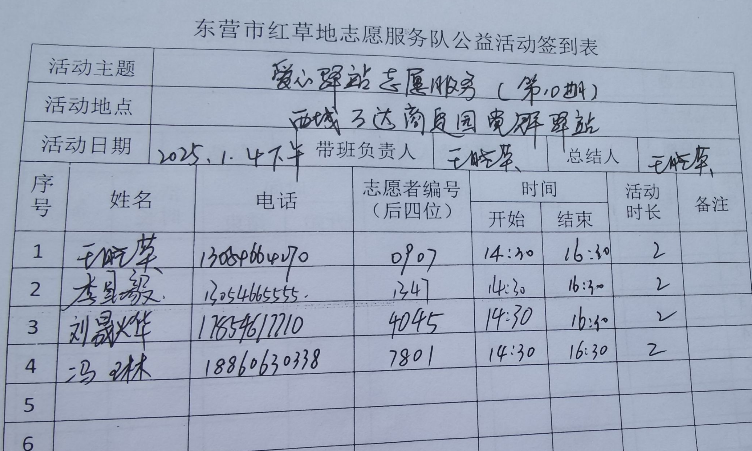 东营市红草地志愿服务队公益活动签到表
活动主题 爱心驿站志愿服务(第10期)
活动地点 西城万达商圈国电驿站
活动日期 2025.1.4下午 带班负责人 王晓荣 总结人 王晓荣
序号 姓名 电话 志愿者编号(后四位) 时间 开始 结束 活动时长 备注
1 王晓荣 13054664270 0907 14:30 16:30 2
2 李 毅 13054665555 1347 14:30 16:30 2
3 刘晟华 17854617710 4045 14:30 16:30 2
4 冯 琳 18860630338 7801 14:30 16:30 2
5
6